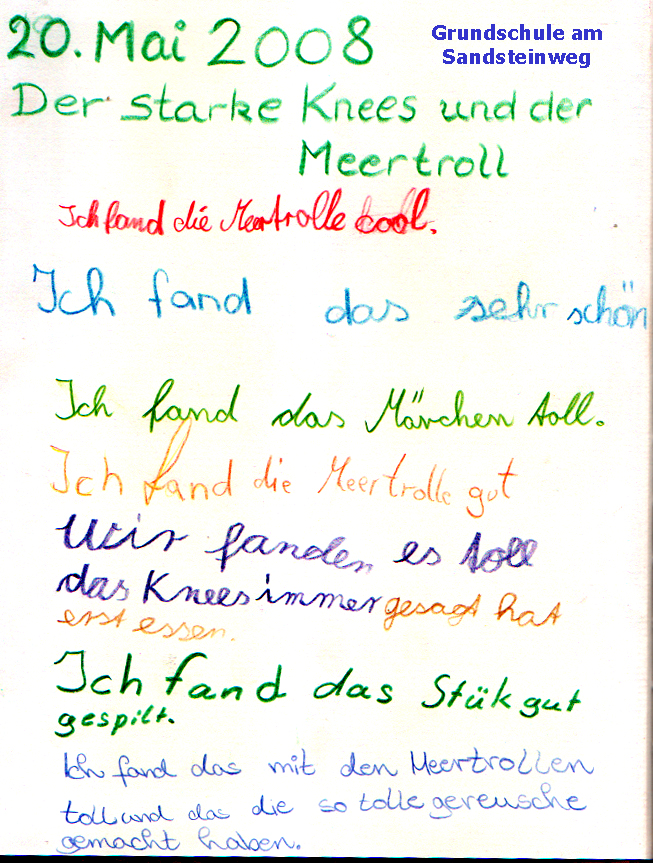 20. Mai 2008
Grundschule am
Sandsteinweg
Der starke Knees und der
Meertroll
Ich fand die Meertrolle cool.
Ich fand das sehr schön
Ich fand das Märchen toll.
Ich fand die Meertrolle gut
Wir fanden es toll
das Knees immer gesagt hat
erst essen.
Ich fand das Stük gut
gespilt.
Ich fand das mit den Meertrollen
toll und das die so tolle gereusche
gemacht haben.